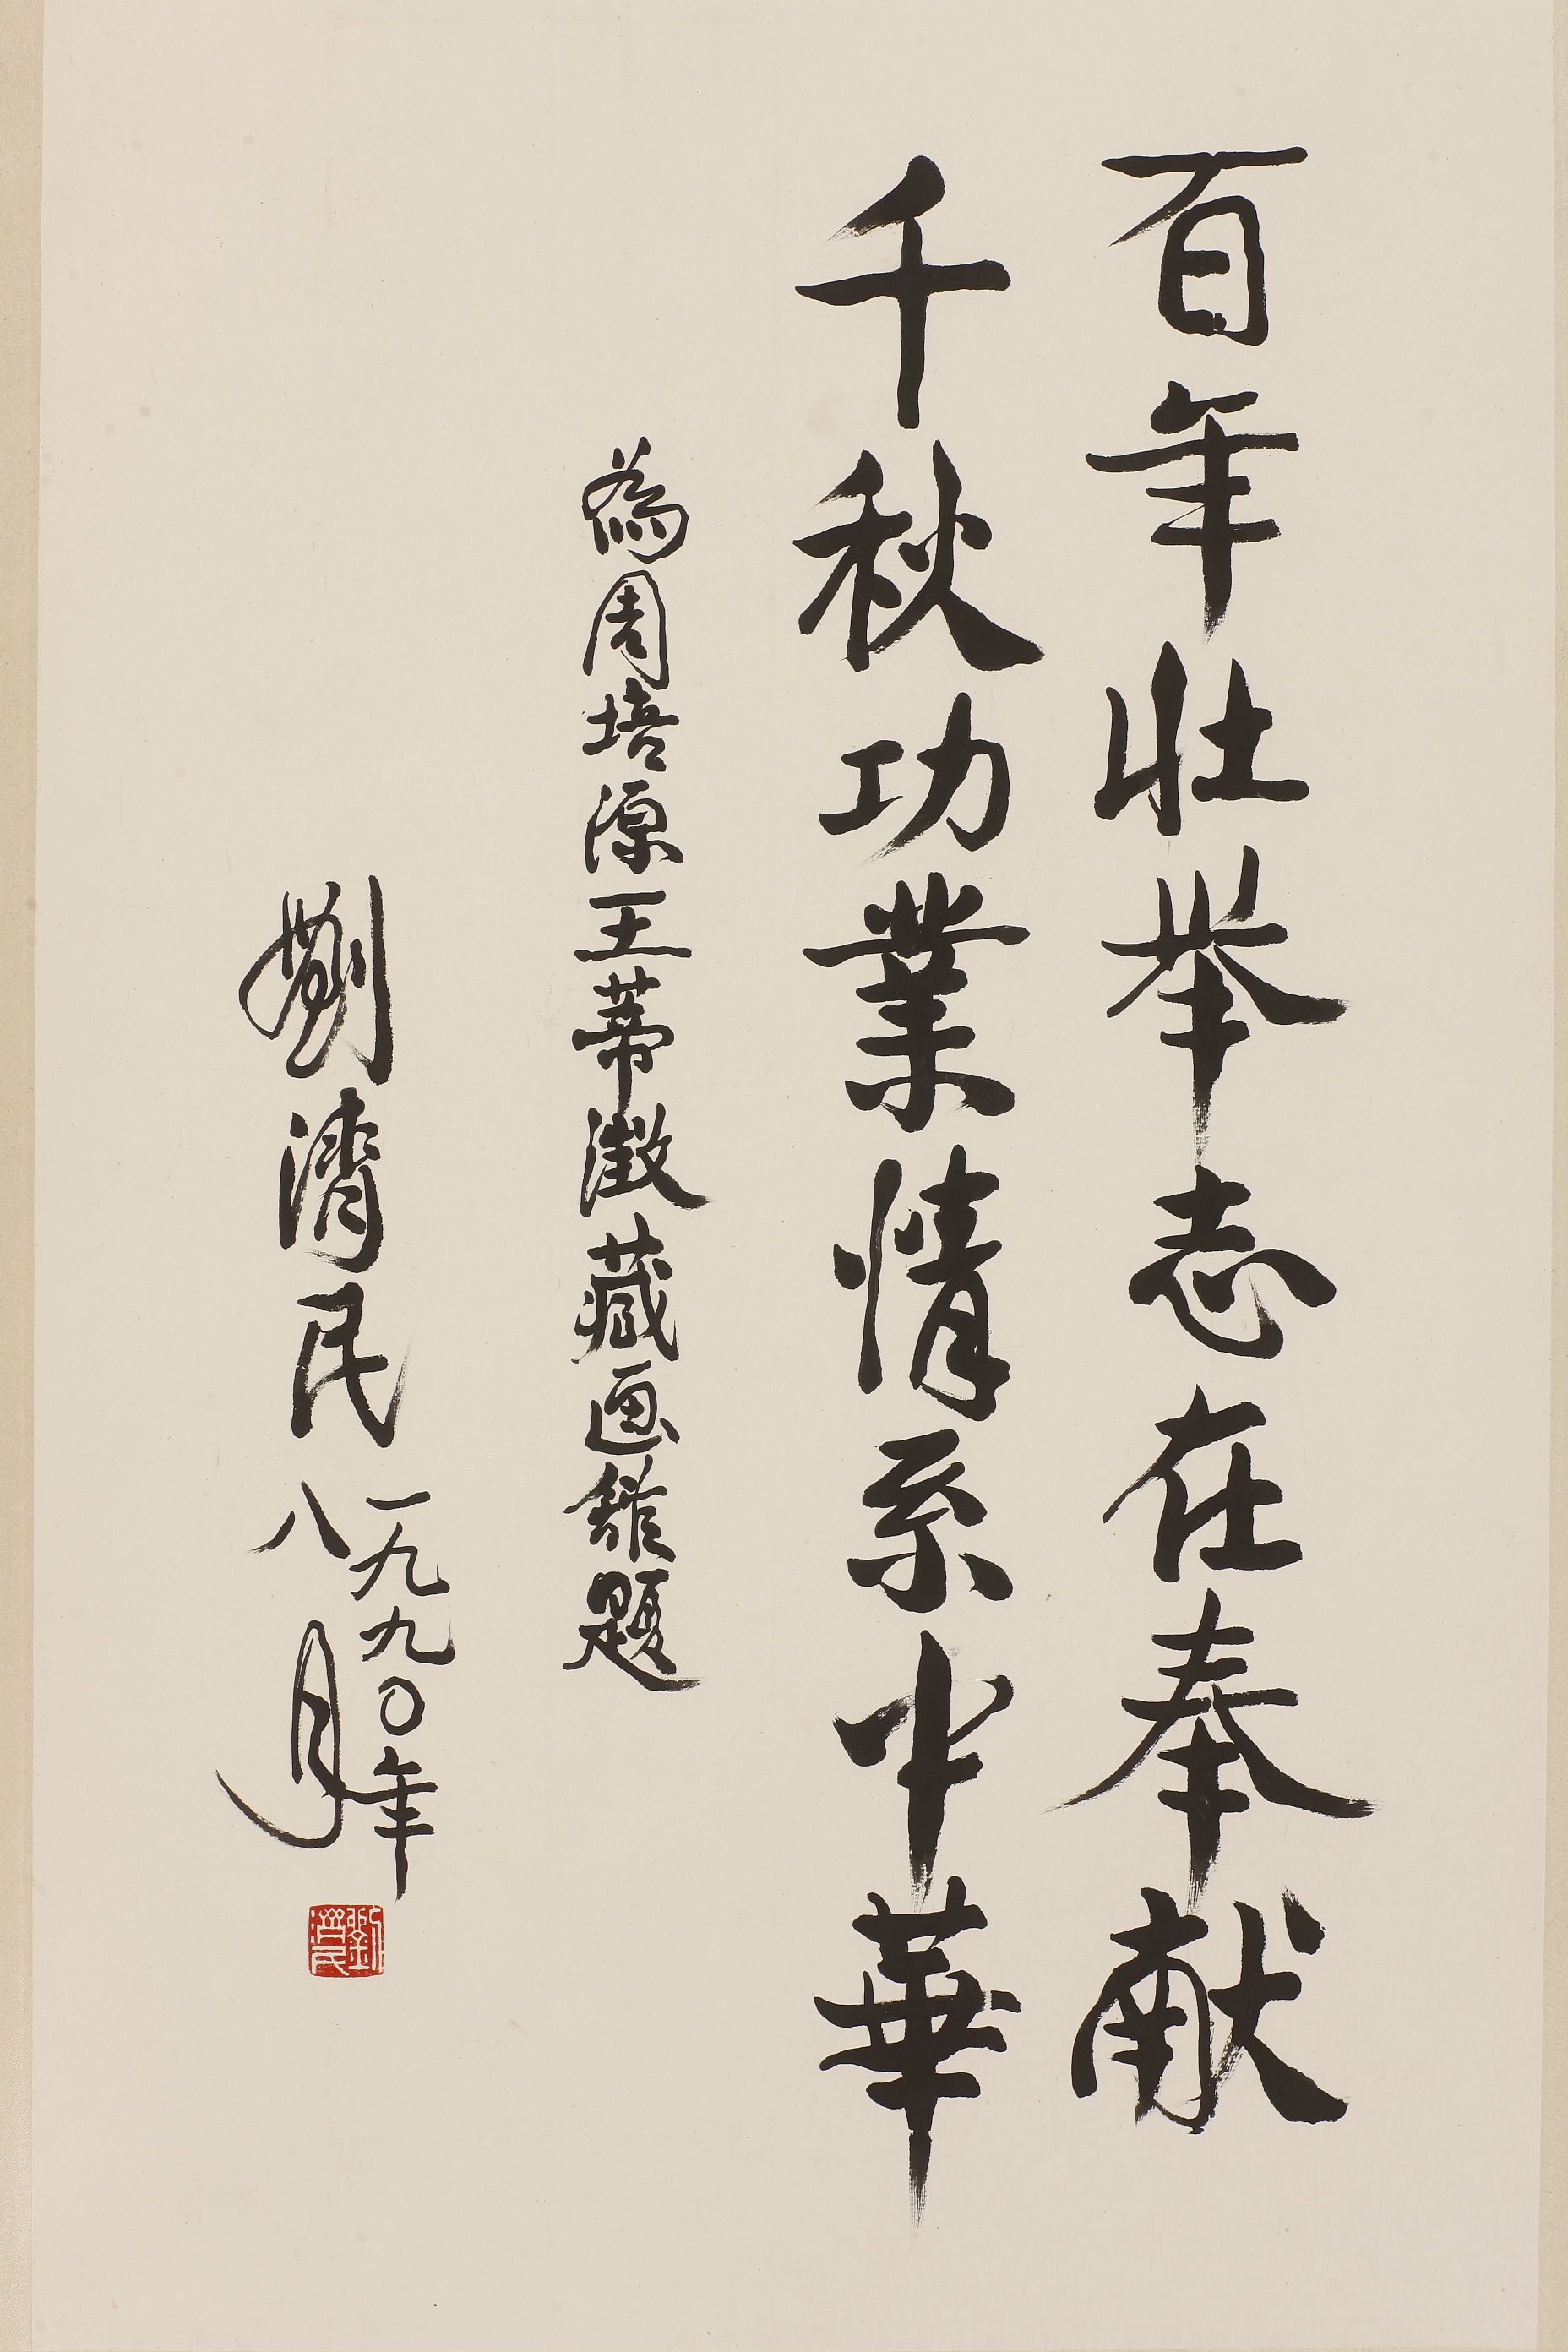 百年壮举志在奉献
千秋功業情系中華
為周培源王蒂澂藏画館題
劉濟民
一九九〇年
八月
劉濟民